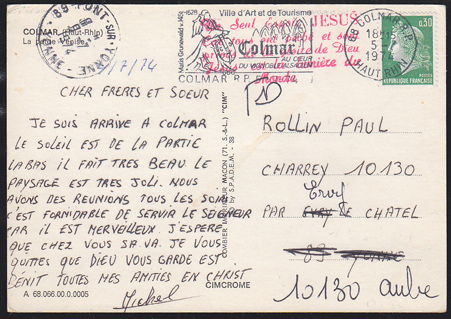 89 PONT-SUR-YONNE
COLMAR (Haut-Rhin)
31/7/74
Ville d'Art et de Tourisme
JESUS
Seul
Colmar
AU CŒUR
DU VIGNOBLE ALSACIEN
de Dieu
lumière du
Monde
COLMAR R.P.
68 COLMAR R.P.
18H15
5
1974
HAUT-RHIN
0,30
REPUBLIQUE FRANÇAISE
CHER FRERES ET SOEUR
JE SUIS ARRIVE A COLMAR
LE SOLEIL EST DE LA PARTIE
LABAS IL FAIT TRES BEAU LE
PAYSAGE EST TRES JOLI. NOUS
AVONS DES REUNIONS TOUS LES SOIR
C'EST FORMIDABLE DE SERVIR LE SEIGNEUR
CAR IL EST MERVEILLEUX J'ESPERE
QUE CHEZ VOUS SA VA. JE VOUS
QUITTES QUE DIEU VOUS GARDE EST
BENIT TOUTES MES AMITIES EN CHRIST
Michel
A 68.066.00.0.0005
CIMCROME
COMBIER IMPRIMEUR MACON (71. S.-&-L.) "CIM"
by S.P.A.D.E.M. - 38
ROLLIN PAUL
CHARREY 10130
Ervy
PAR LE CHATEL
89 YONNE
10130 Aube